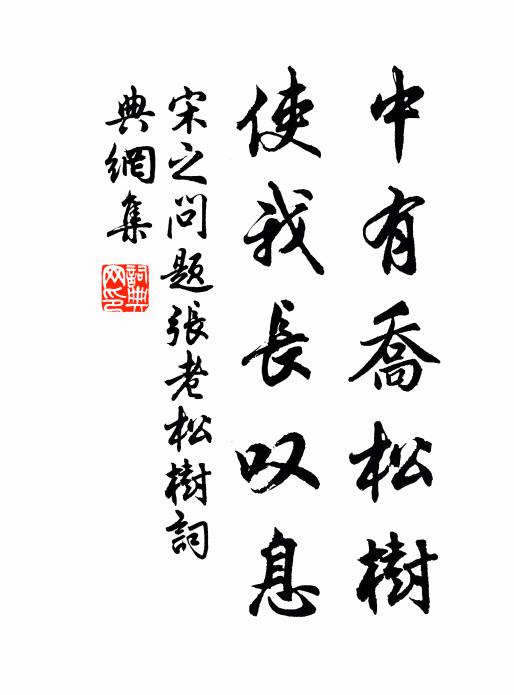 中有喬松樹
使我長叹息
宋之问题張老松樹詞
典網集
詞典网印